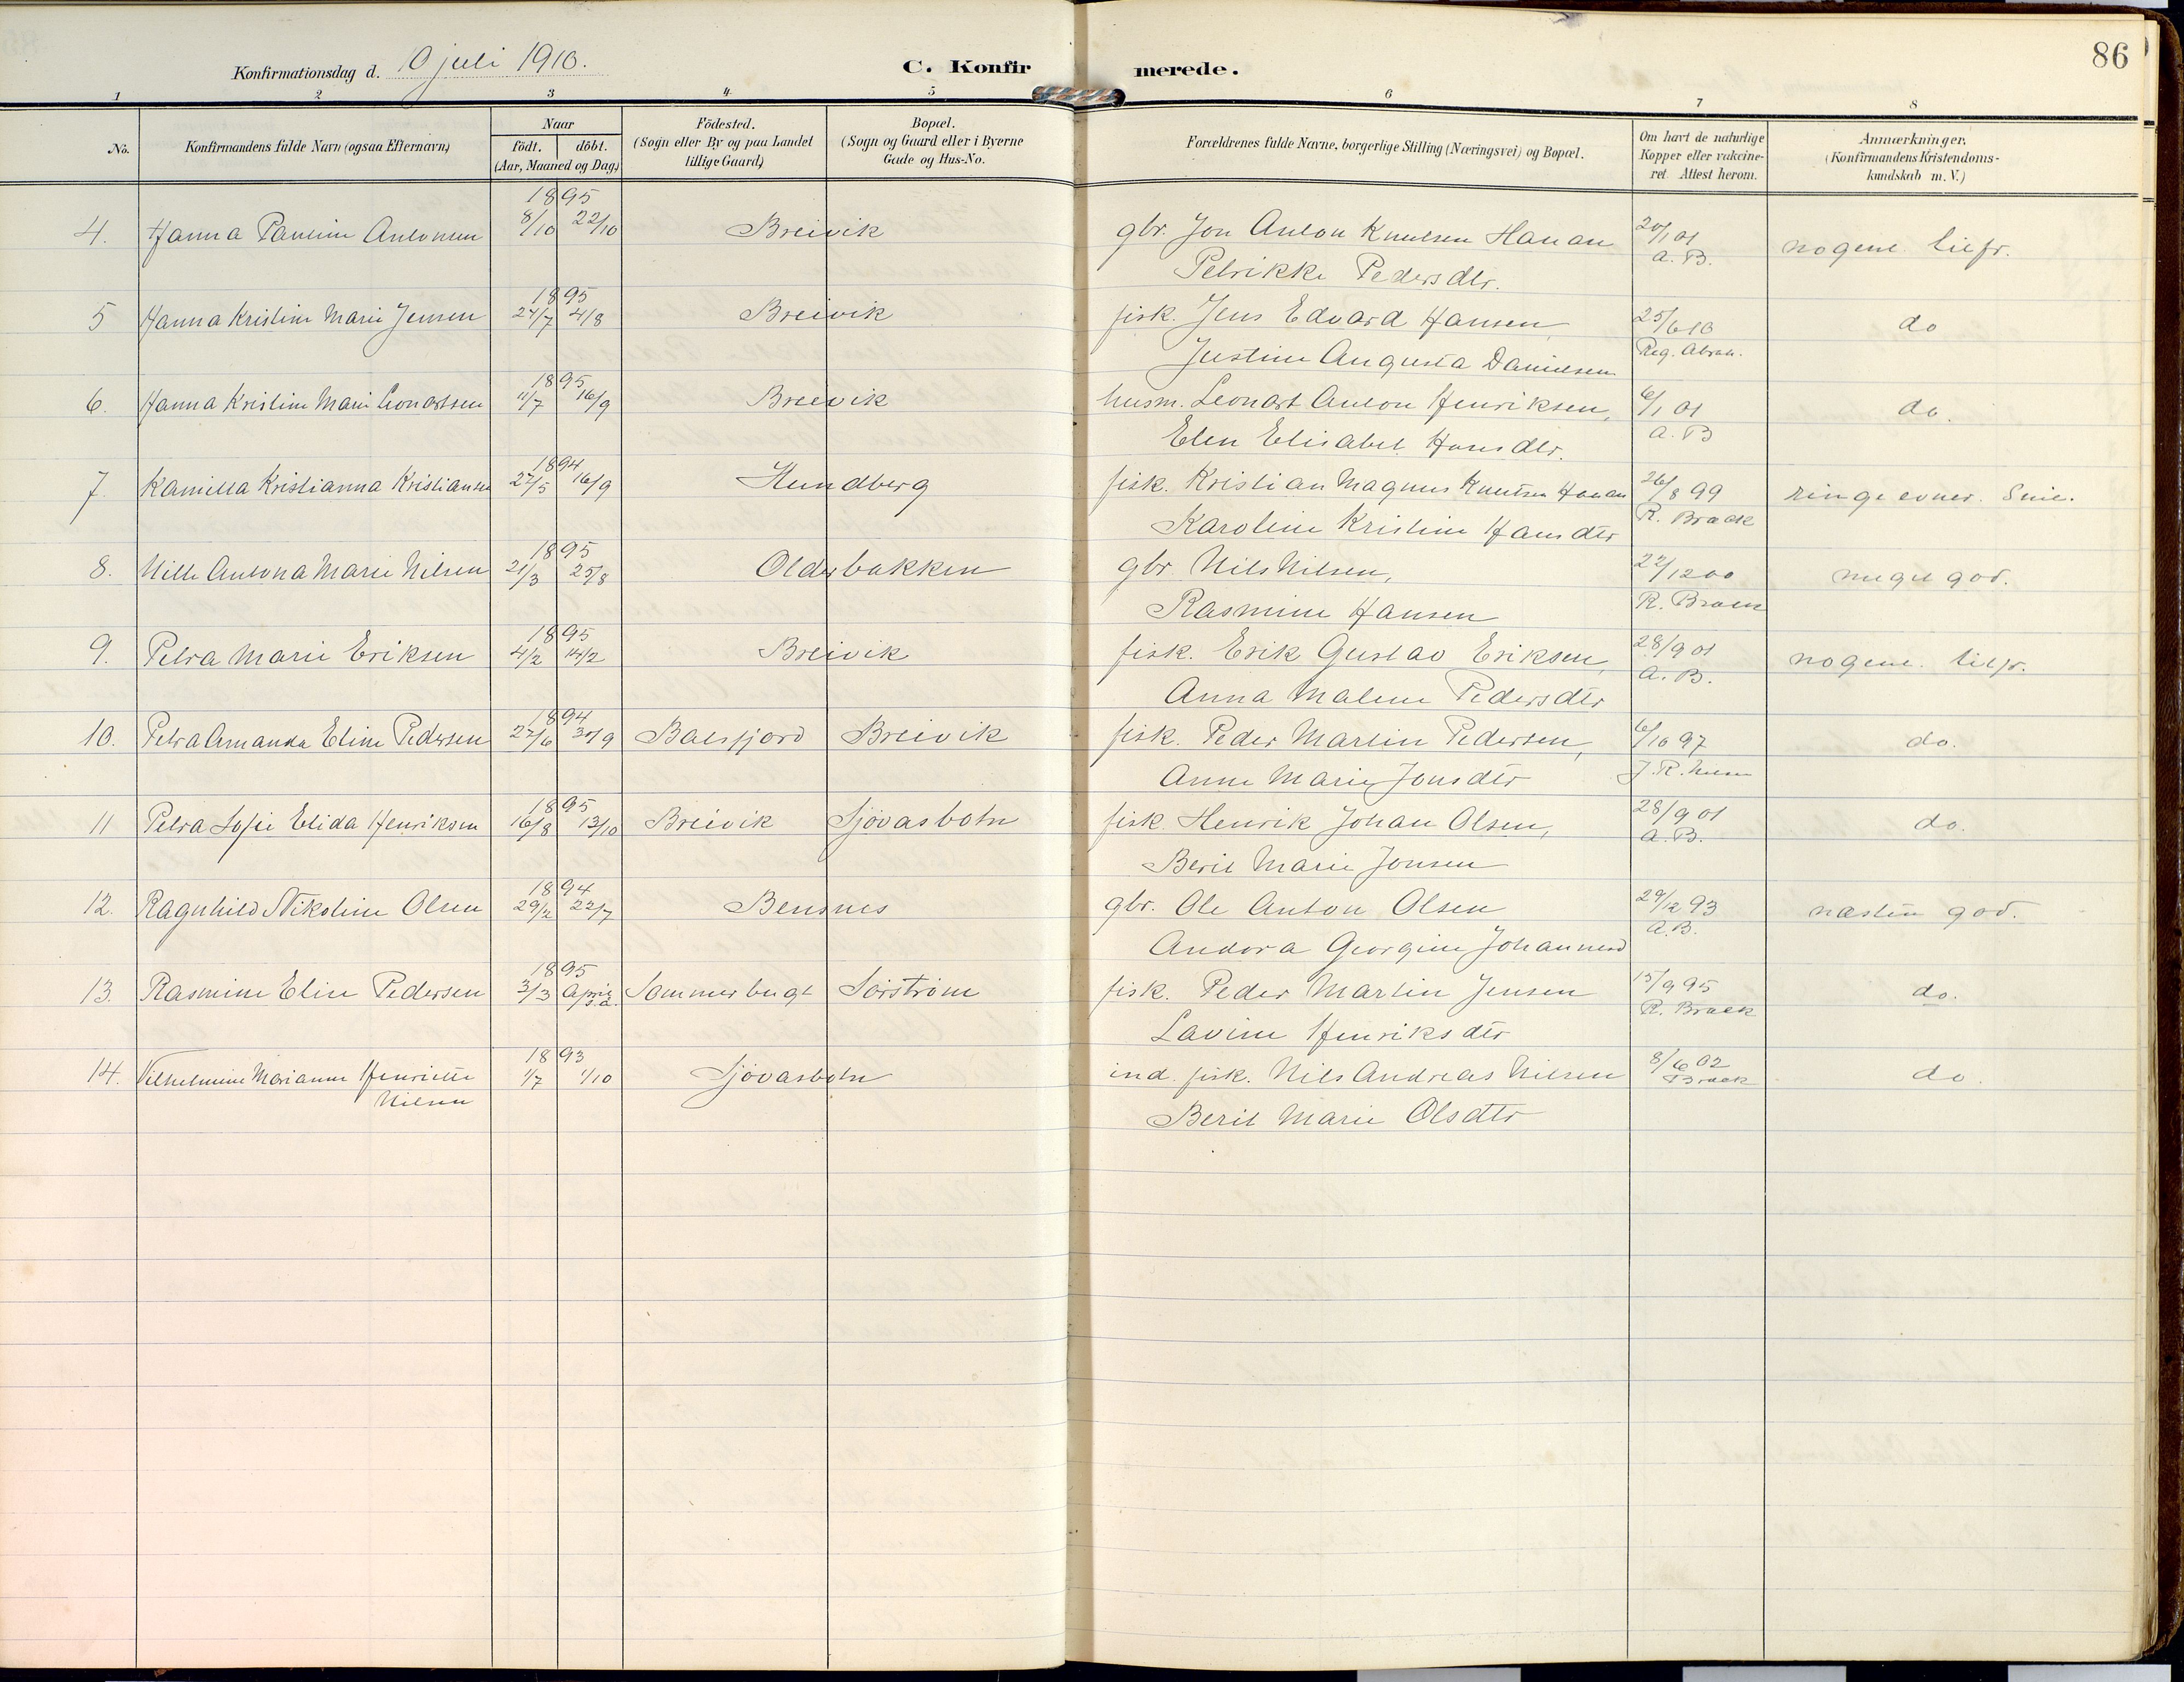 86
Konfirmationsdag d. 10 juli 1910.
C. Konfirmerede.
1 2 3 4 5 6 7 8
No.
Konfirmandens fulde Navn (ogsaa Efternavn)
Naar
födt. döbt.
(Aar, Maaned og Dag)
Födested.
(Sogn eller By og paa Landet
tillige Gaard)
Bopæl.
(Sogn og Gaard eller i Byerne
Gade og Hus-No.
Forældrenes fulde Navne, borgerlige Stilling (Næringsvei) og Bopæl.
Om havt de naturlige
Kopper eller vakcine-
ret. Attest herom.
Anmærkninger.
(Konfirmandens Kristendoms-
kundskab m. V.)
1895
4. Hanna Pauline Antonsen 8/10 22/10 Breivik gbr. Jon Anton Knutsen Hanan 20/1 01 nogenl. tilfr.
Petrikke Pedersdtr. A. B.
1895
5 Hanna Kristine Marie Jensen 24/7 4/8 Breivik fisk. Jens Edvard Hansen, 25/6 10 do
Justine Augusta Danielsen Reg. Abrah.
1895
6. Hanna Kristine Marie Leonartsen 11/7 16/9 Breivik husm. Leonart Anton Henriksen, 6/1 01 do.
Elen Elisabet Hansdtr. A. B
1894
7. Kamilla Kristianna Kristiansen 27/5 16/9 Hundberg fisk. Kristian Magnus Knutsen Hanan 26/8 99 ringe evner.
Karoline Kristine Hansdtr R. Braek
1895
8. Nille Antona Marie Nilsen 21/3 25/8 Olderbakken gbr Nils Nilsen, 22/12 00 meget god.
Rasmine Hansen R. Braek
1895
9. Petra Marie Eriksen 4/2 14/2 Breivik fisk. Erik Gustav Eriksen, 28/9 01 nogenl. tilfr.
Anna Malene Pedersdtr A. B.
1894
10. Petra Amanda Eline Pedersen 27/6 30/9 Balsfjord Breivik fisk. Peder Martin Pedersen, 6/10 97 do.
Anne Marie Jonsdtr J. R. Nilsen
1895
11 Petra Sofie Elida Henriksen 16/8 13/10 Breivik Sjövasbotn fisk. Henrik Johan Olsen, 28/9 01 do.
Berit Marie Jonsen A. B.
1894
12. Ragnhild Nikoline Olsen 29/2 22/7 Bensnes gbr. Ole Anton Olsen 29/12 93 næsten god.
Andora Georgine Johannesd A. B.
1895
13. Rasmine Eline Pedersen 3/3 April s.a. Sommerbugt Sörström fisk. Peder Martin Jensen 15/9 95 do.
Lavine Henriksdtr R. Braek
1893
14. Vilhelmine Marianne Henriette 1/7 1/10 Sjövasbotn ind. fisk. Nils Andreas Nilsen 8/6 02 do.
Nilsen Berit Marie Olsdtr Braek